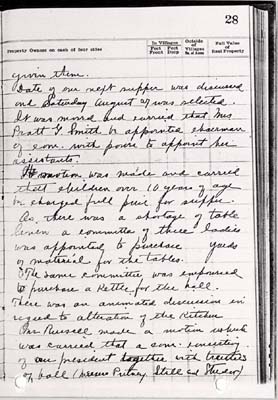 28
Property Owners on each of four sides
In Villages
Feet Front
Feet Deep
Outside of Villages
No. of Acres
Full Value of Real Property
given them.
Date of our next supper was discussed
and Saturday August 27 was selected.
It was moved and carried that Mrs
Pratt G Smith be appointed chairman
of com. with power to appoint her
assistants.
A motion was made and carried
that children over 10 years of age
be charged full price for supper.
As there was a shortage of table
linen a committee of three ladies
was appointed to purchase yards
of material for the tables.
The same committee was empowered
to purchase a Kettle for the hall.
There was an animated discussion in
regard to alteration of the Kitchen
Mrs Russell made a motion which
was carried that a com. consisting
of our president together with trustees
of hall (Putney Still and